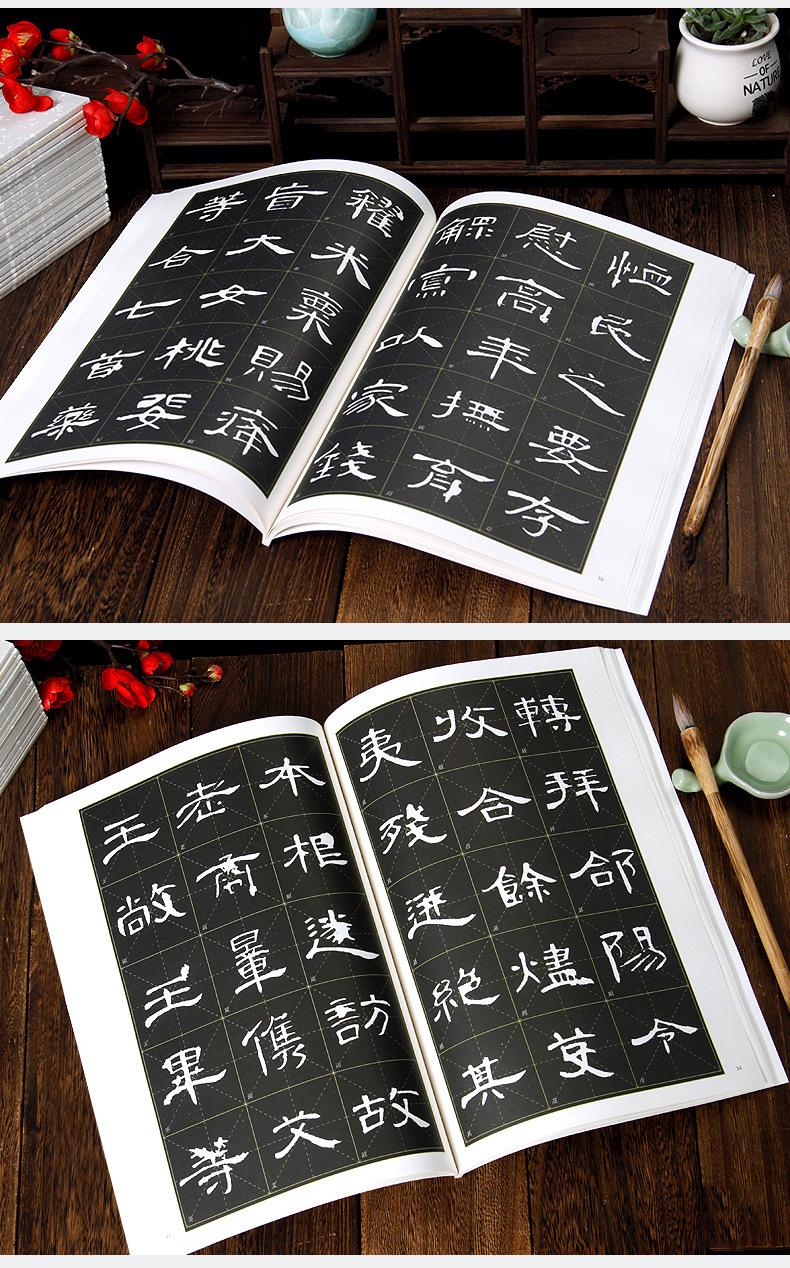 LOVE
OF
NATURE
恤民之要存
慰高年撫育
鰥寡以家錢
糴米粟賜癃
盲大女桃婓
等合七首藥
36
轉拜郃陽令
收合餘燼芟
夷殘迸絕其
本根遂訪故
老商量儁艾
王敞王畢等
34